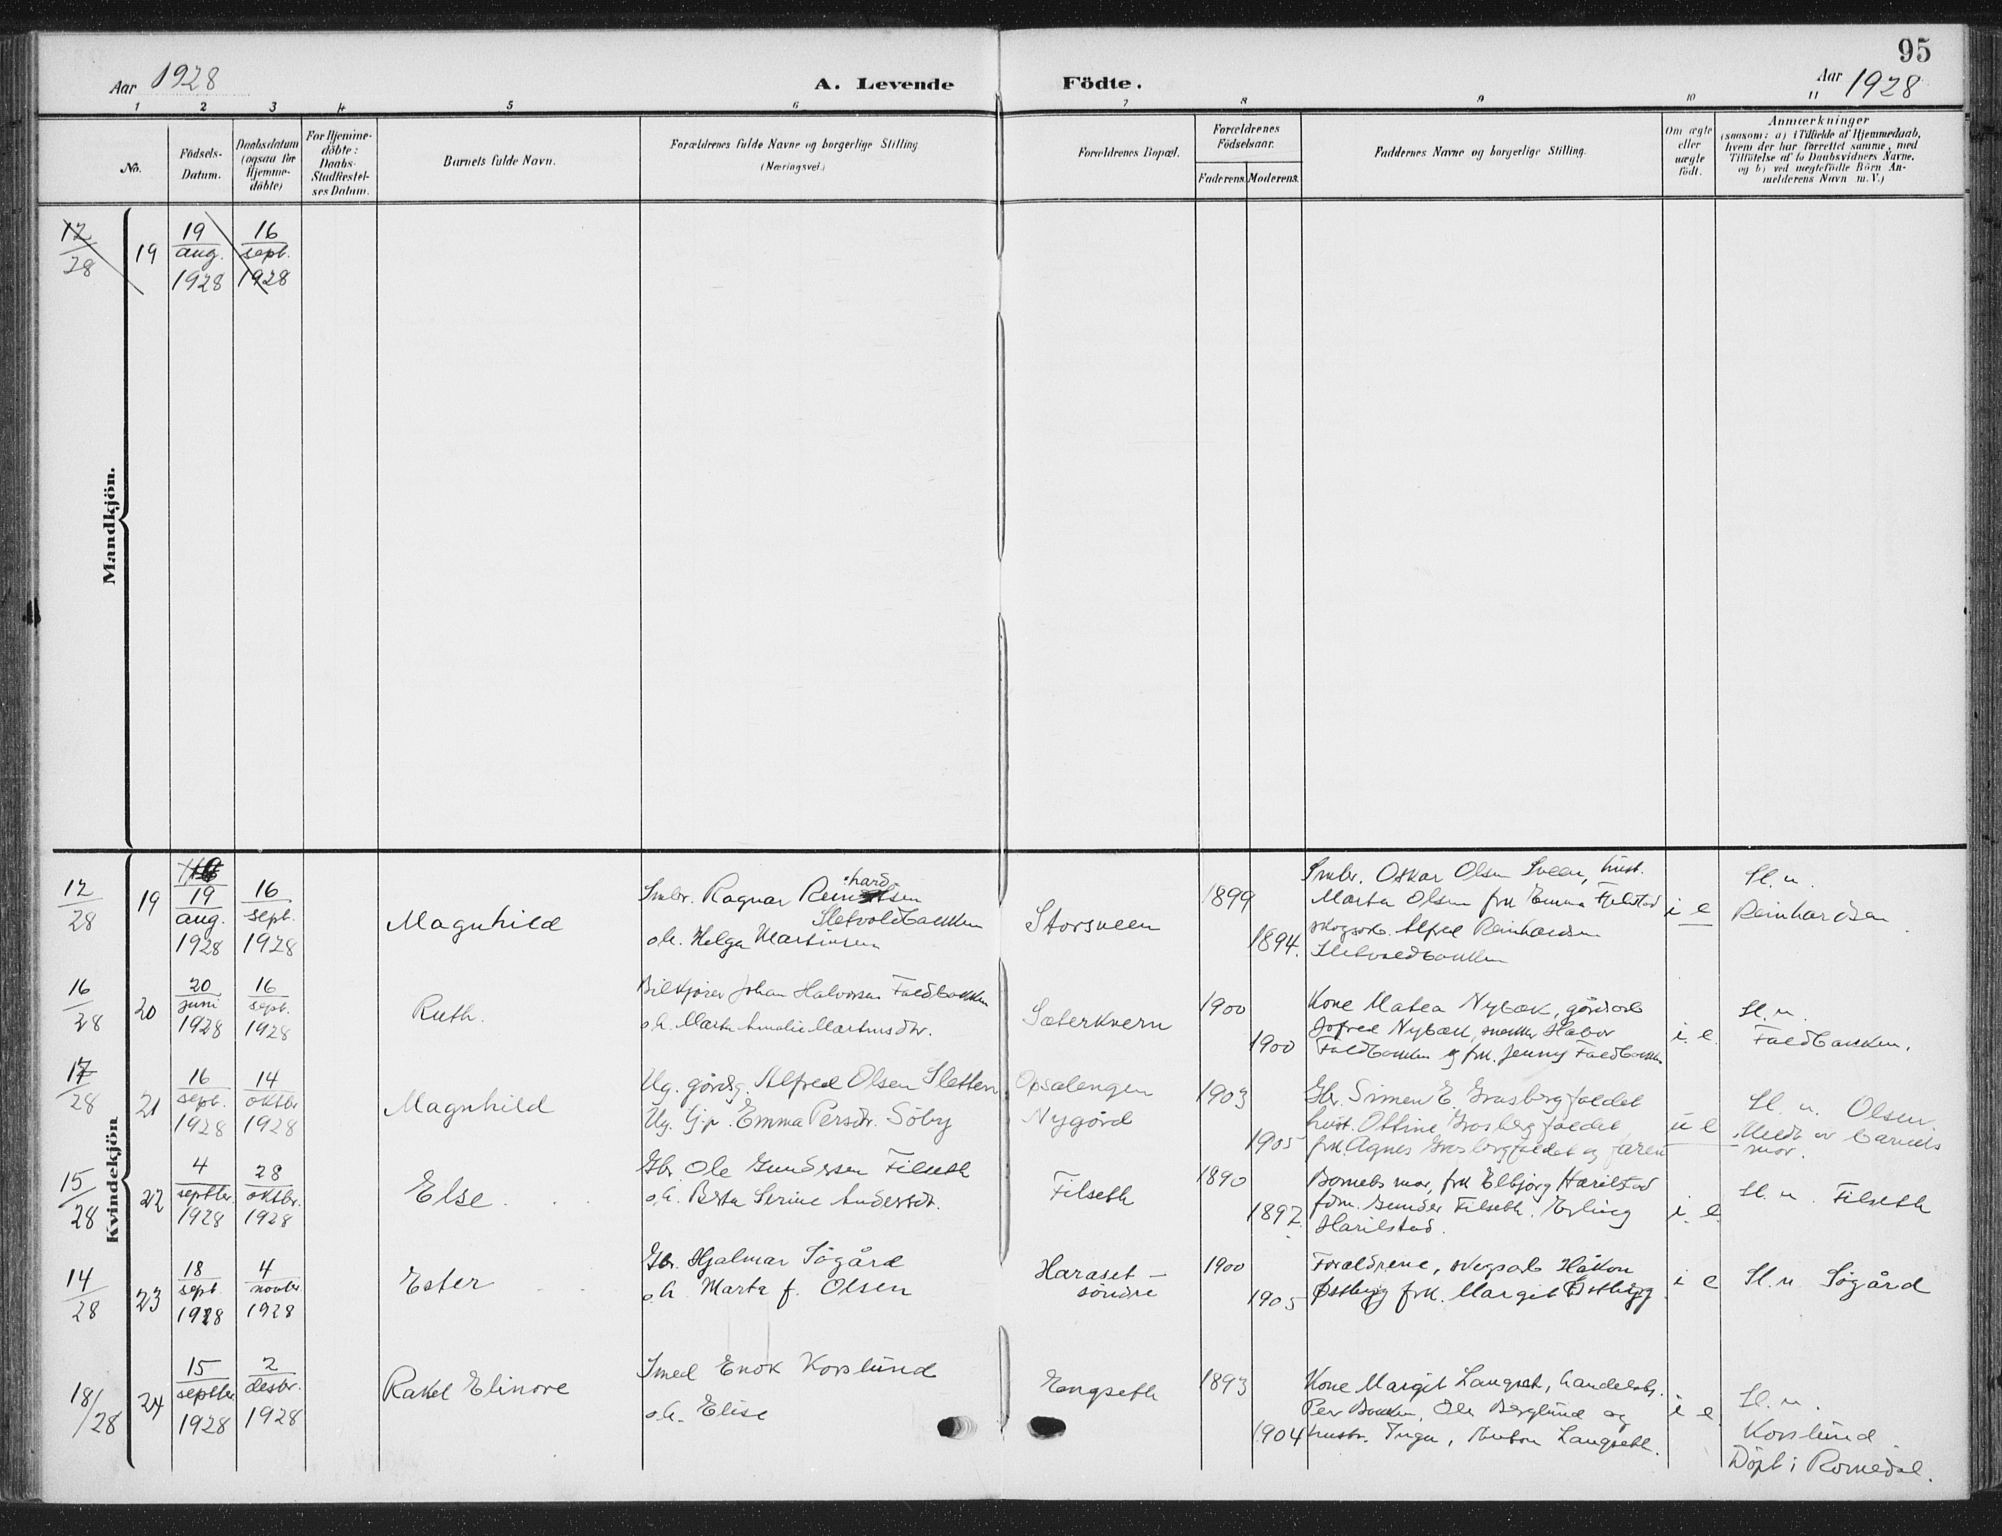 95
Aar 1928
A. Levende Födte.
Aar 1928
1 2 3 4 5 6 7 8 9 10 11
No.
Födsels-Datum.
Daabsdatum (ogsaa for Hjemme-döbte)
For Hjemme-döbte: Daabs-Stadfæstel-ses Datum.
Barnets fulde Navn.
Forældrenes fulde Navne og borgerlige Stilling
(Næringsvei.)
Forældrenes Bopæl.
Forældrenes Födselsaar.
Faderens. Moderens.
Faddernes Navne og borgerlige Stilling.
Om ægte eller uægte födt.
Anmærkninger
(saasom: a) i Tilfælde af Hjemmedaab,
hvem der har forrettet samme, med
Tilföielse af to Daabsvidners Navne,
og b) ved uægtefödte Börn An-
melderens Navn m. V.)
Mandkjön.
12/28 19 19 aug. 1928 16 sept. 1928
Kvindekjön
12/28 19 19 aug. 1928 16 sept. 1928
Magnhild
Smbr. Ragnar Reinhardsen
Sletvoldbakken
o.h. Helga Martinsen
Storsveen
1899
1894.
Smbr. Oskar Olsen Sveen, hust.
Marta Olsen frk Emma Fjelstad
skogsarb. Alfred Reinhardsen
Sletvoldbakken
i e
Sl.n.
Reinhardsen
16/28 20 20 juni 1928 16 sept. 1928
Ruth.
Bilkjører Johan Halvorsen Faldbakken
o.h. Marta Amalie Martinusdtr.
Sæterkvern
1900
1900
Kone Matea Nybæk, gårdarb
Jofred Nybæk, snekker Halvor
Faldbakken og frk. Jenny Faldbakken
i. e.
Sl.n.
Faldbakken.
17/28 21 16 sept. 1928 14 oktbr 1928
Magnhild
Ug. gårdsg. Alfred Olsen Sletten
Ug. Gp. Emma Persdr. Söby
Opsalengen
Nygård
1903
1905
Gbr. Simen E. Grasbergfaldet
hust. Ottine Grasbergfaldet
frk Agnes Grasbergfaldet og faren
u e
Sl. n. Olsen.
Meldt av barnets
mor.
15/28 22 4 septbr. 1928 28 oktbr. 1928
Else.
Gbr Ole Gundersen Filseth
o.h. Berta Serine Andersdt.
Filseth
1890
1892.
Barnets mor, frk Elbjörg Harilstad
fdm. Gunder Filseth. Erling
Harilstad.
i. e.
Sl. n. Filseth
14/28 23 18 sept. 1928 4 novbr 1928
Ester
Gbr. Hjalmar Sögård
o.h. Marta f. Olsen
Haraset –
söndre
1900
1905
Foreldrene, skogsarb Håkon
Østbyg frk. Margit Østbyg
i e
Sl. n Sögård
18/28 24 15 septbr 1928 2 desbr. 1928
Rakel Elinore
Smed Enok Korslund
o.h. Elise
Engseth
1893
1904
Kone Margit Langset, handelsb.
Per Bakken, Ole Berglund og
hustr. Inga, Anton Langseth.
i e.
Sl.n.
Korslund
Döpt i Romedal.